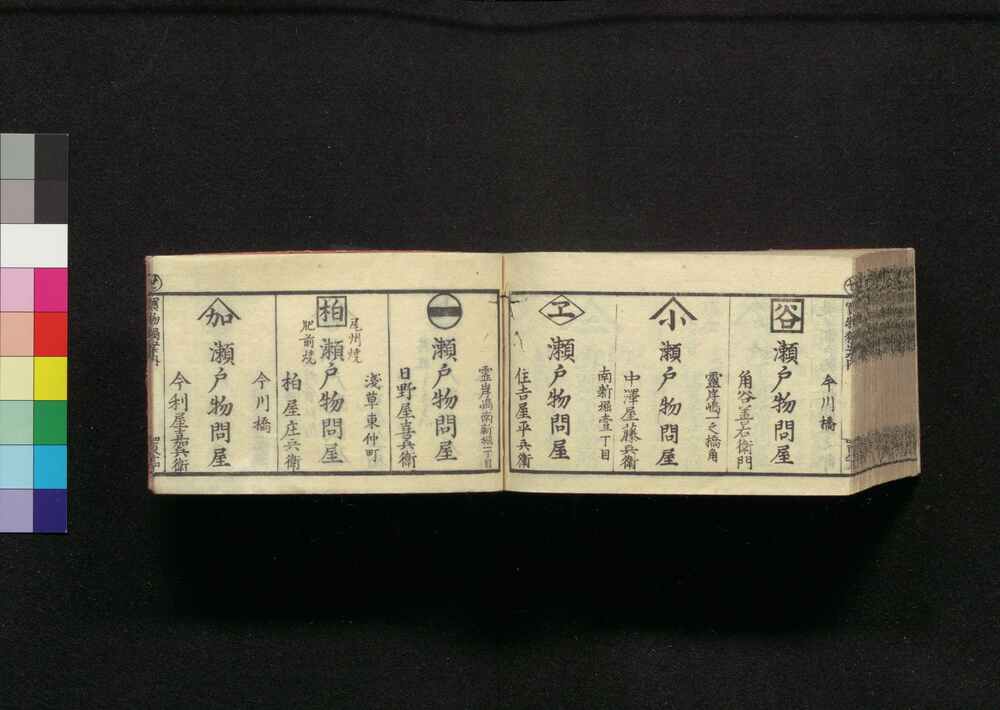 谷
瀬戸物問屋
今川橋
角谷善右衛門
小
瀬戸物問屋
靈岸嶋一之橋角
中澤屋藤兵衛
エ
瀬戸物問屋
南新堀壹丁目
住吉屋平兵衛
一
瀬戸物問屋
霊岸嶋南新堀二丁目
日野屋喜兵衛
柏
尾州焼
肥前焼
瀬戸物問屋
淺草東仲町
柏屋庄兵衛
加
瀬戸物問屋
今川橋
今利屋嘉兵衛